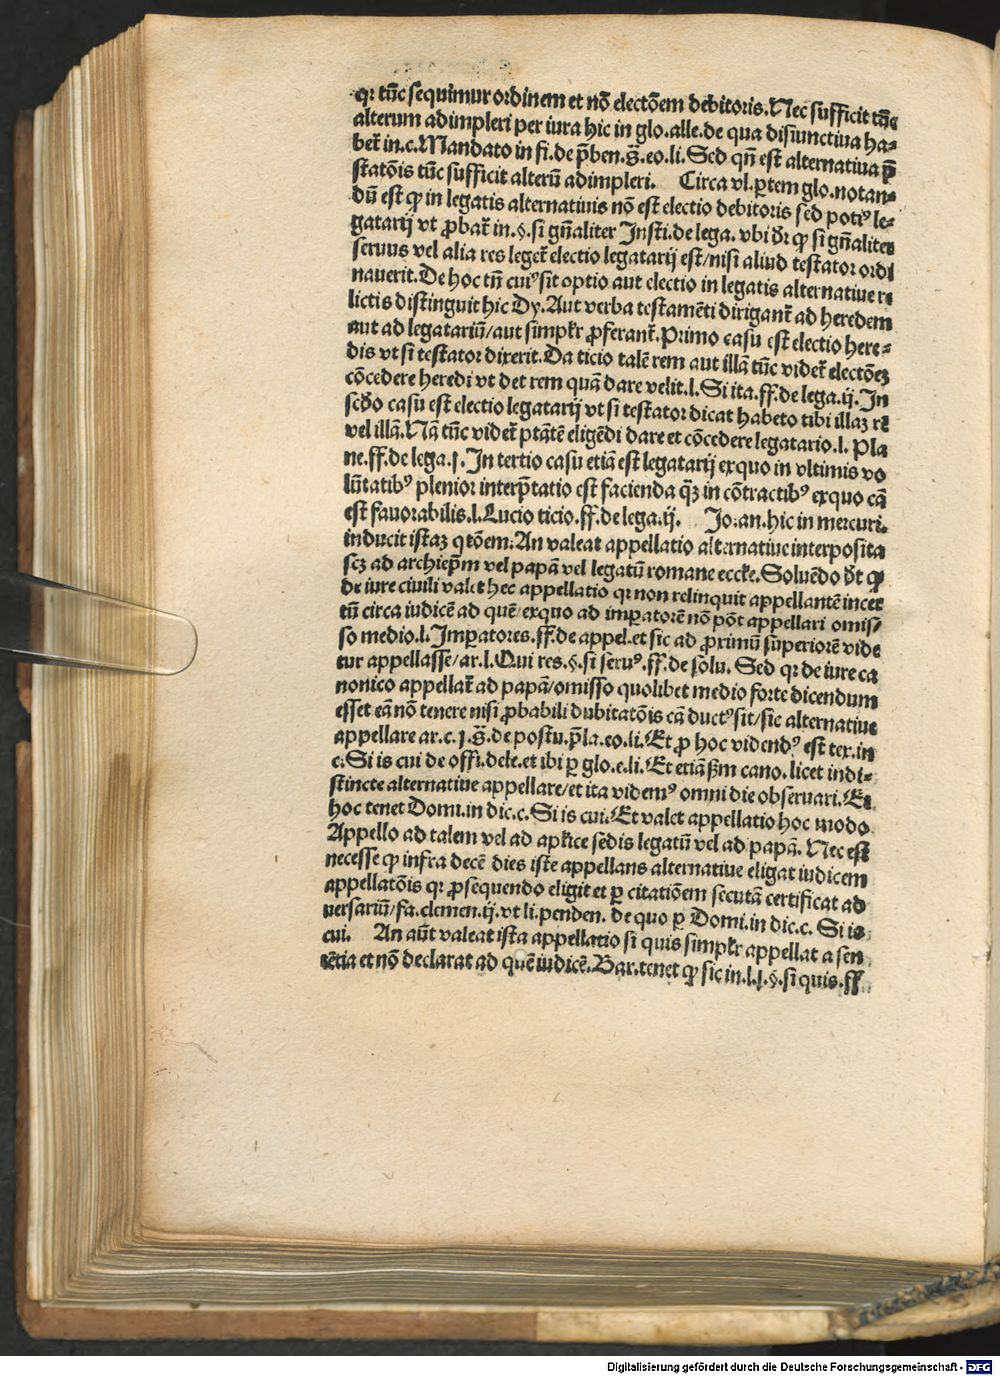 qꝛ tūc sequimur ordinem et nō electōem debitoris. Nec sufficit tūc
alterum adimpleri per iura hic in glo. alle. de qua disiunctiua ha⸗
bet̄ in. c. Mandato in fi. de p̄ben. s̄. eo. li. Sed qn̄ est alternatiua p̄
statōis tūc sufficit alterū adimpleri. Circa vl. ꝑtem glo. notan⸗
dū est ꝙ in legatis alternatiuis nō est electio debitoris sed potiꝰ le⸗
gatarij vt ꝓbat̄ in. §. si gn̄aliter Insti. de lega. vbi dr̄ ꝙ si gn̄aliter
seruus vel alia res leget̄ electio legatarij est/nisi aliud testator ordi
nauerit. De hoc tn̄ cuiꝰ sit optio aut electio in legatis alternatiue re
lictis distinguit hic Dy. Aut verba testamēti dirigant̄ ad heredem
aut ad legatariū/aut simpl̄r ꝓferant̄. Primo casu est electio here⸗
dis vt si testator dixerit. Da ticio talē rem aut illā tūc videt̄ electōeꝫ
cōcedere heredi vt det rem quā dare velit. l. Si ita. ff. de lega. ij. In
scd̄o casu est electio legatarij vt si testator dicat habeto tibi illaꝫ rē
vel illā. Nā tūc videt̄ ptātē eligēdi dare et cōcedere legatario. l. Pla
ne. ff. de lega. j. In tertio casu etiā est legatarij exquo in vltimis vo
lūtatibꝰ plenior interp̄tatio est facienda qꝫ̄ in cōtractibꝰ exquo cā
est fauorabilis. l. Lucio ticio. ff. de lega. ij. Jo. an. hic in mercuri.
inducit istaꝫ qtōem. An valeat appellatio alternatiue interposita
scꝫ ad archiep̄m vel papā vel legatū romane ecclē. Soluēdo dr̄t ꝙ
de iure ciuili valet hec appellatio qꝛ non relinquit appellantē incer
tū circa iudicē ad quē/exquo ad imꝑatorē nō pōt appellari omis⸗
so medio. l. Imꝑatores. ff. de appel. et sic ad ꝓximū suꝑiorē vide
tur appellasse/ar. l. Qui res. §. si seruꝰ. ff. de solu. Sed qꝛ de iure ca
nonico appellat̄ ad papā/omisso quolibet medio forte dicendum
esset eā nō tenere nisi ꝓbabili dubitatōis cā ductꝰ sit/sic alternatiue
appellare ar. c. j. s̄. de postu. p̄la. eo. li. Et ꝓ hoc videndꝰ est tex. in
c. Si is cui de offi. dele. et ibi ꝑ glo. e. li. Et etiā ẜm cano. licet indi⸗
stincte alternatiue appellare/et ita videmꝰ omni die obseruari. Et
hoc tenet Domi. in dic. c. Si is cui. Et valet appellatio hoc modo
Appello ad talem vel ad apl̄ice sedis legatū vel ad papā. Nec est
necesse ꝙ infra decē dies iste appellans alternatiue eligat iudicem
appellatōis qꝛ ꝓsequendo eligit et ꝑ citatiōem secutā certificat ad
uersariū/fa. clemen. ij. vt li. penden. de quo ꝑ Domi. in dic. c. Si is
cui. An aūt valeat ista appellatio si quis simpl̄r appellat a sen
tētia et nō declarat ad quē iudicē. Bar. tenet ꝙ sic in. l. j. §. si quis. ff.
Digitalisierung gefördert durch die Deutsche Forschungsgemeinschaft - DFG